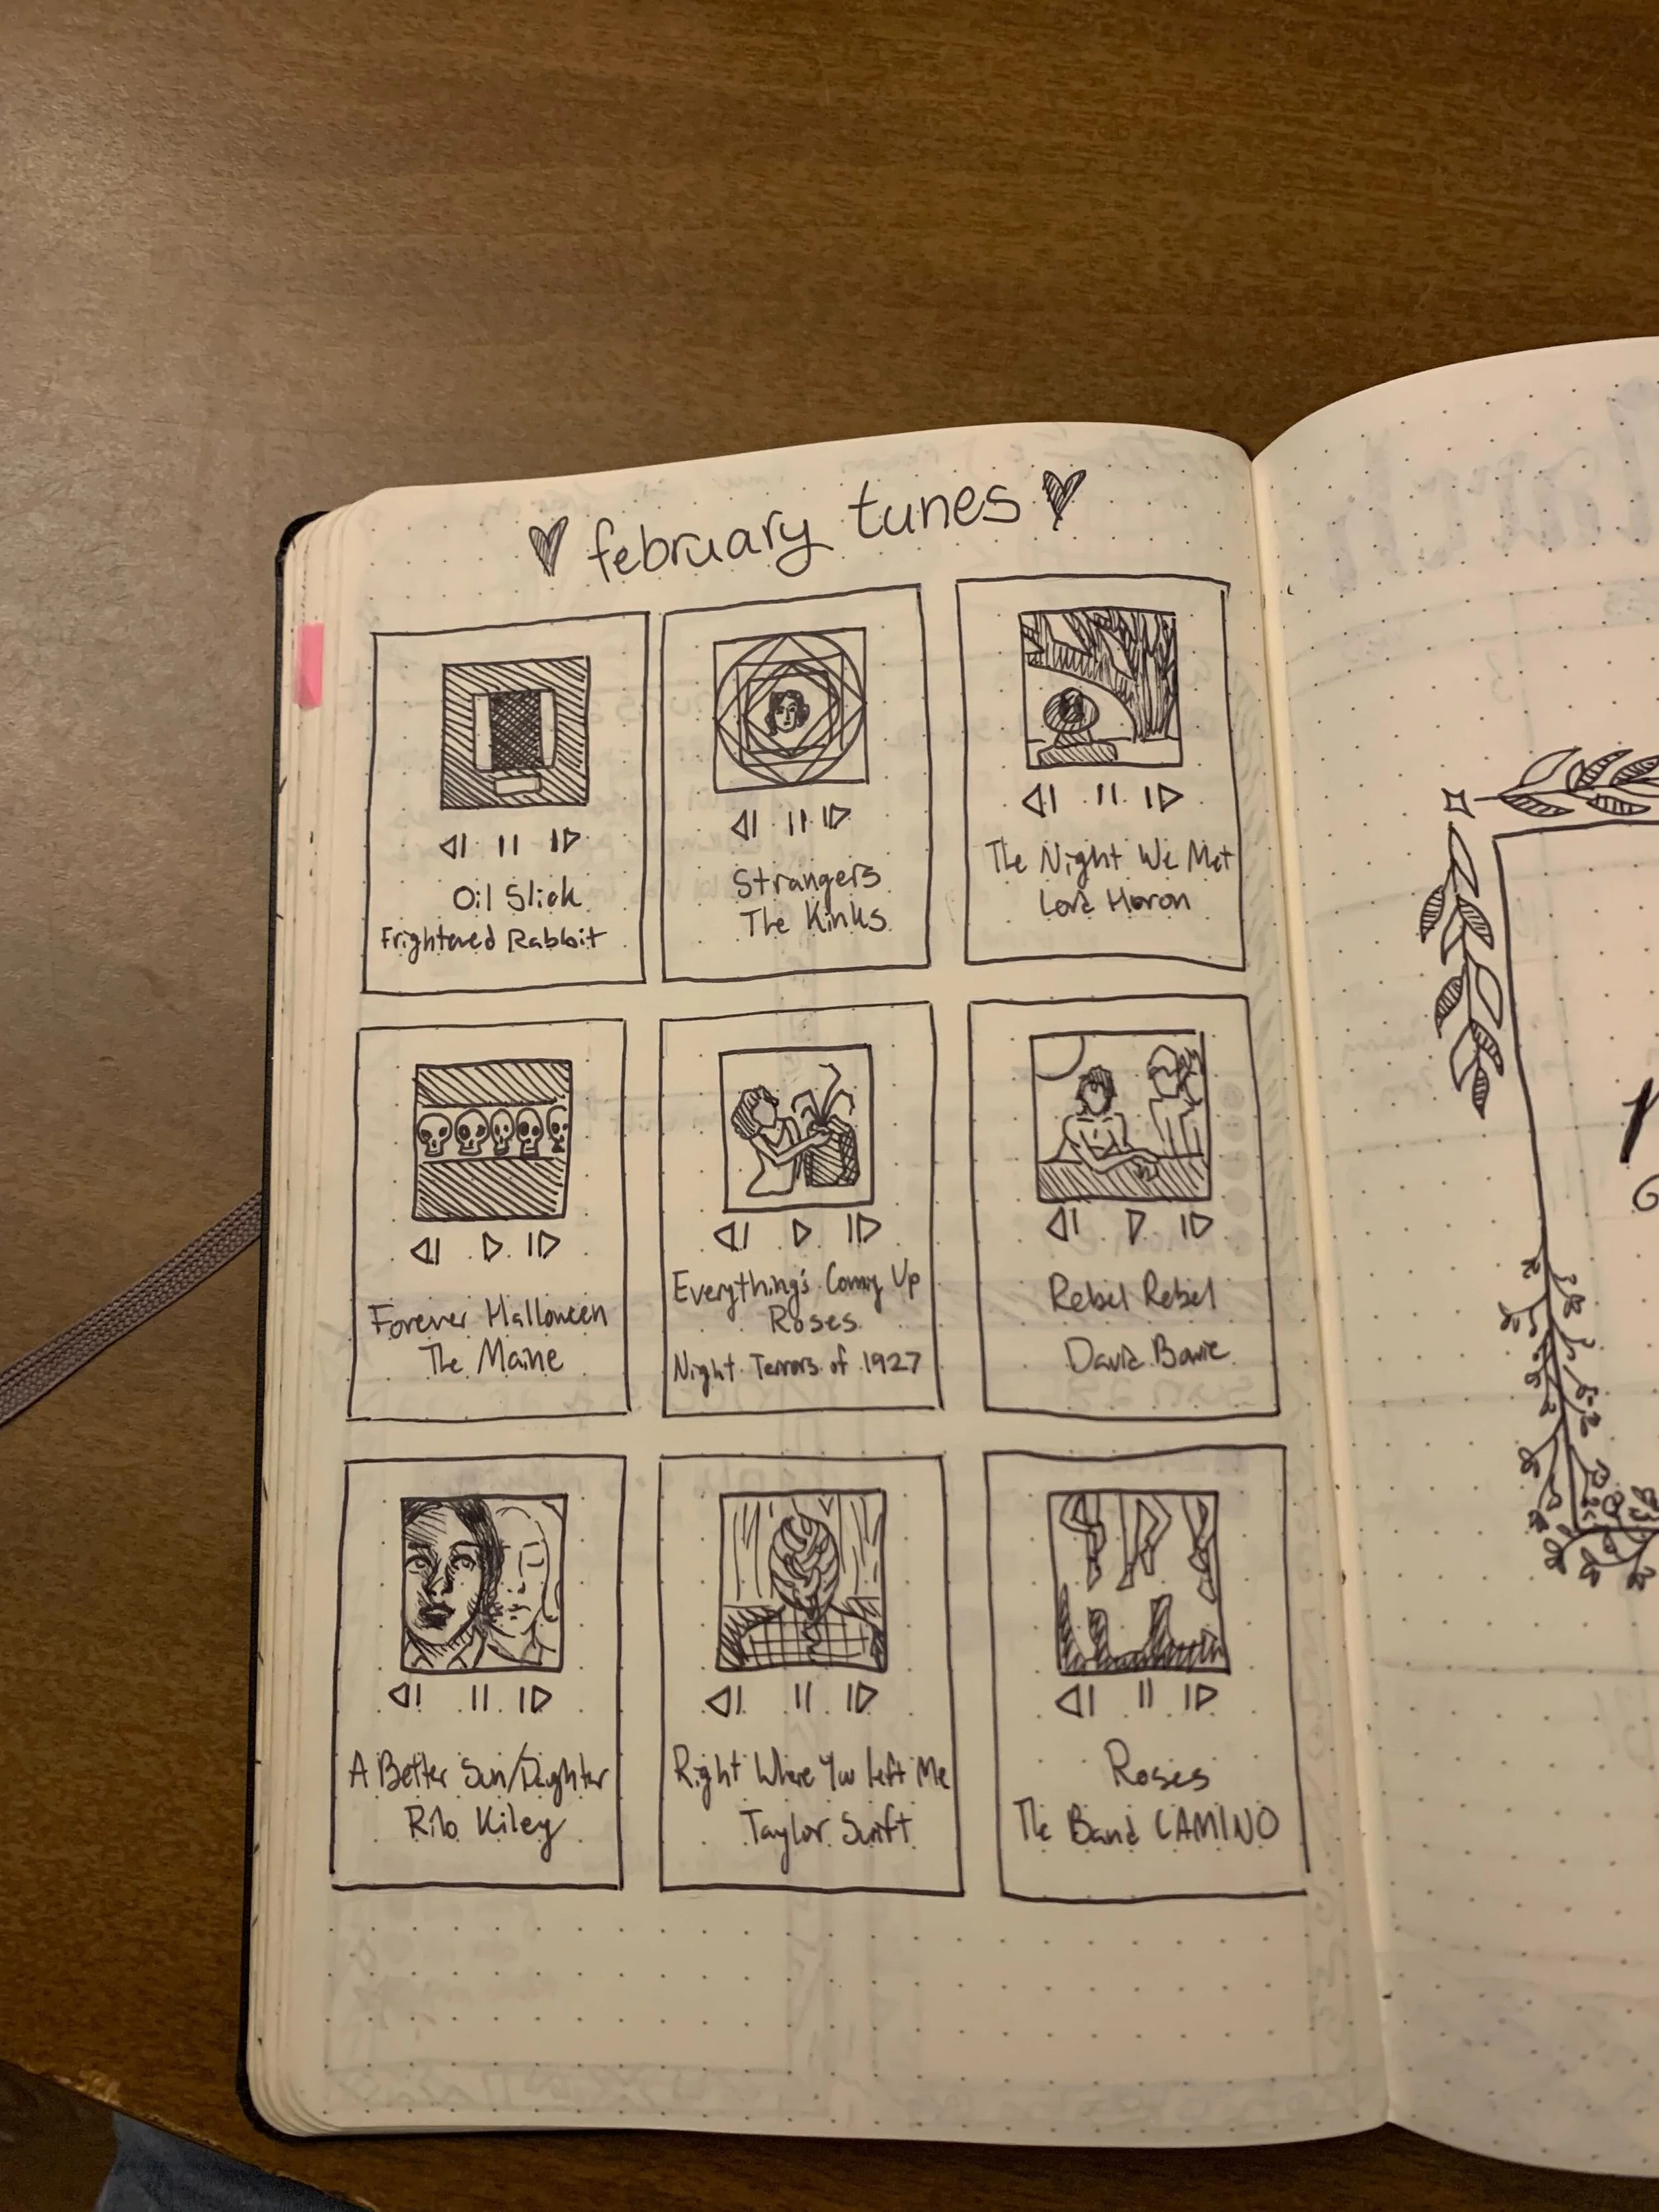 february tunes
Oil Slick
Frightened Rabbit
Strangers
The Kinks
The Night We Met
Lord Huron
Forever Halloween
The Maine
Everything's Coming Up
Roses
Night Terrors of 1927
Rebel Rebel
David Bowie
A Better Son/Daughter
Rilo Kiley
Right Where You Left Me
Taylor Swift
Roses
The Band CAMINO